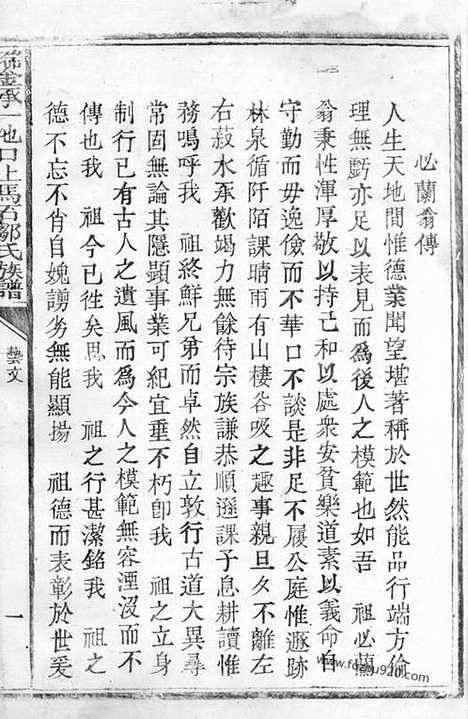 必蘭翁傳
人生天地間惟德業聞望堪著稱於世然能品行端方倫
理無虧亦足以表見而爲後人之模範也如吾　祖必蘭
翁秉性渾厚敬以持己和以處衆安貧樂道素以義命自
守勤而毋逸儉而不華口不談是非足不履公庭惟遯跡
林泉循阡陌課晴雨有山棲谷汲之趣事親旦夕不離左
右菽水承歡竭力無餘待宗族謙恭順遜課子息耕讀惟
務嗚呼我　祖終鮮兄弟而卓然自立敦行古道大異尋
常固無論其隱顯事業可紀宜垂不朽卽我　祖之立身
制行已有古人之遺風而爲今人之模範無容湮沒而不
傳也我　祖今已徃矣思我　祖之行甚潔銘我　祖之
德不忘不肖自媿謭劣無能顯揚　祖德而表彰於世爰
瑞金承一池口上馬石鄒氏族譜
藝文
一